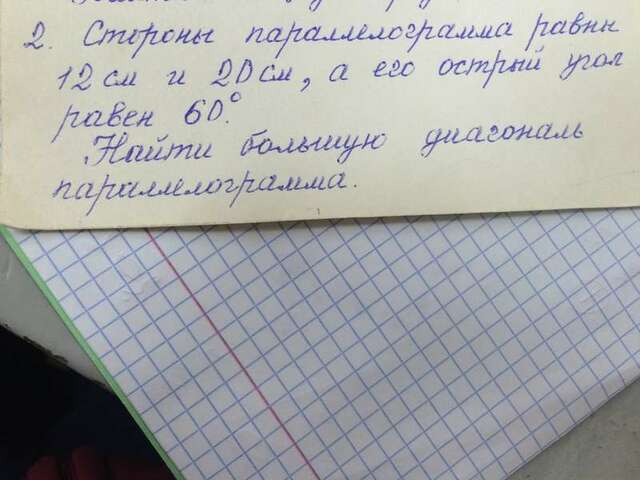 2. Стороны параллелограмма равны
12 см и 20 см, а его острый угол
равен 60°.
Найти большую диагональ
параллелограмма.